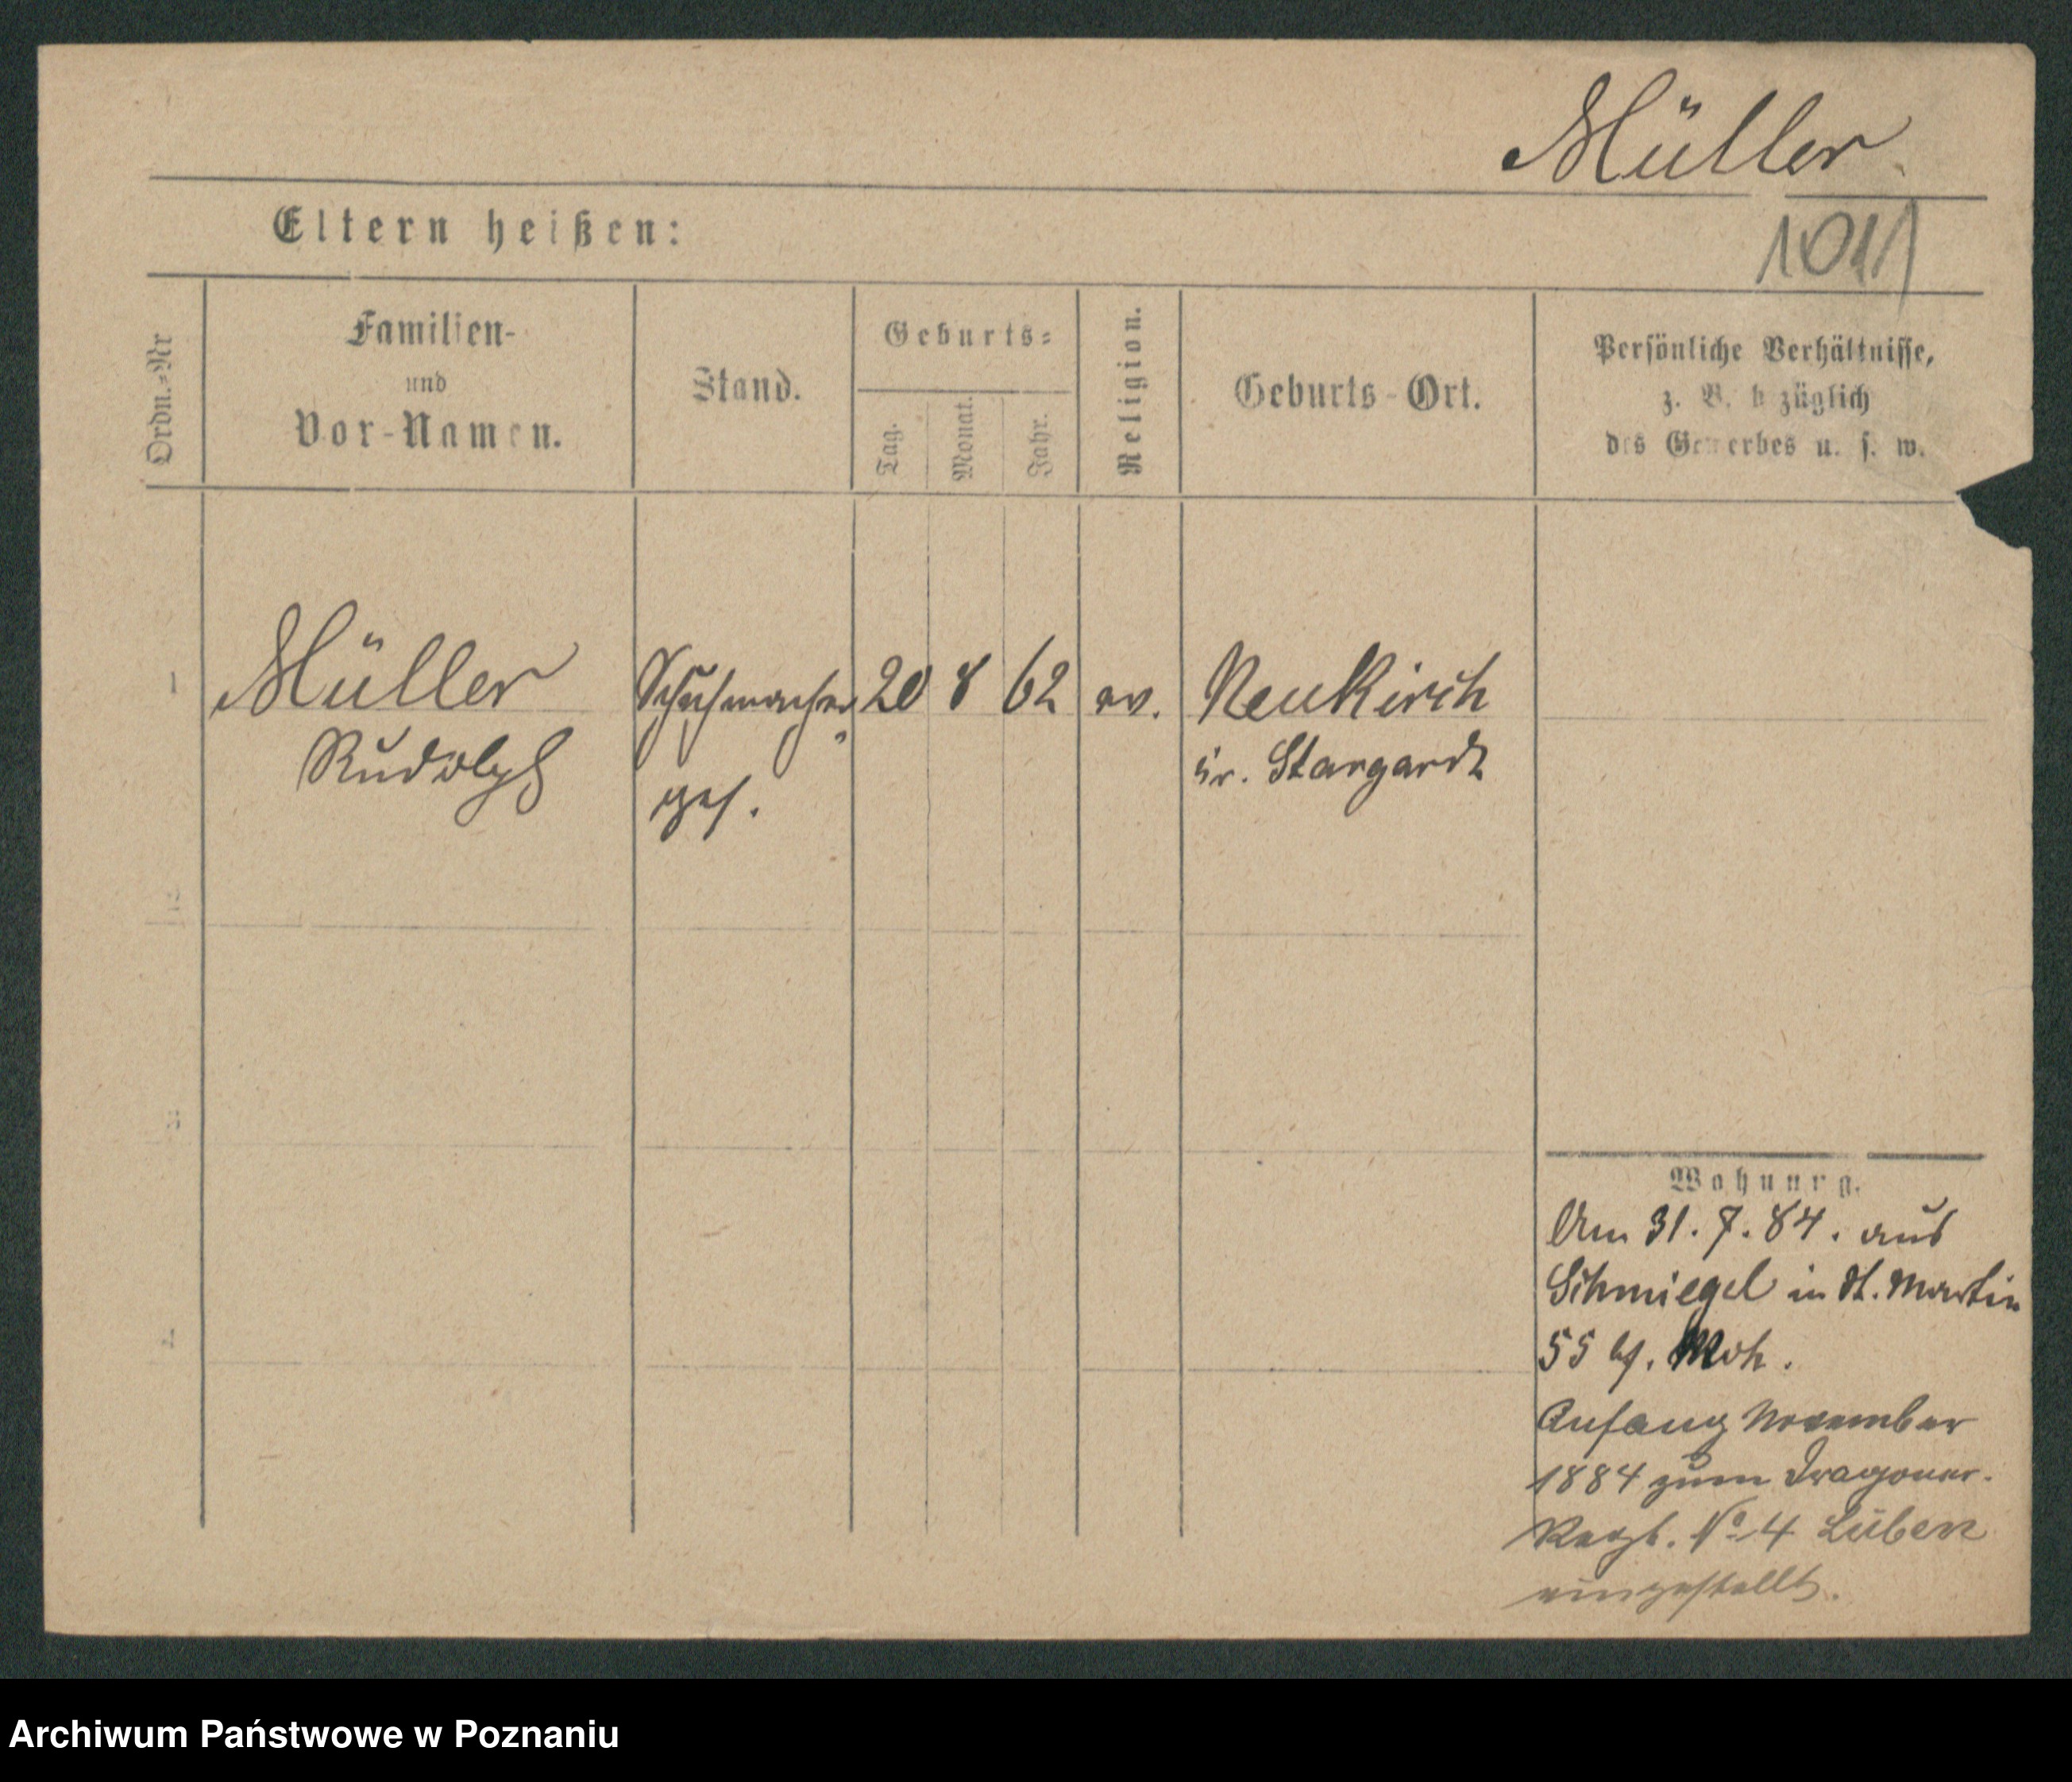 Müller
Eltern heißen:
1011
Ordn.=Nr
Familien-
und
Vor-Namen.
Stand.
Geburts=
Tag.
Monat.
Jahr.
Religion.
Geburts-Ort.
Persönliche Verhältnisse,
z. B. bezüglich
des Gewerbes u. s. w.
1
Müller
Rudolph
Schuhmacher
ges.
20
8
62
ev.
NeuKirch
Kr. Stargardt
2
3
4
Wohnung.
Am 31. 7. 84. aus
Schmiegel in St. Martin
55 bf. Moh.
Anfang November
1884 zum Dragoner-
Regt. No 4 Lüben
eingestellt.
Archiwum Państwowe w Poznaniu